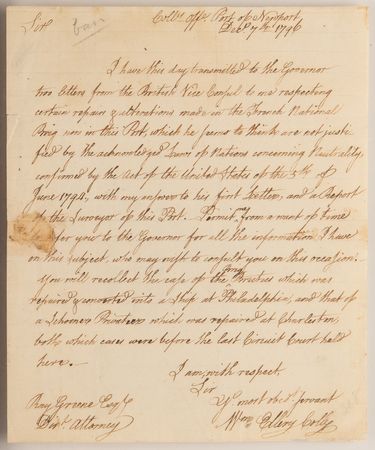 Coll.rs Office Port of Newport
Dec.r 7th 1796
Sir
I have this day transmitted to the Governor
two Letters from the British Vice Consul to me respecting
certain repairs & alterations made in the French National
Brig now in this Port, which he seems to think are not justi-
fied by the acknowledged Laws of Nations concerning Neutrality,
confirmed by the Act of the United States of the 5th of
June 1794, with my answer to his first Letter, and a Report
of the Surveyor of this Port. Permit me from a want of time
to refer you to the Governor for all the information I have
on this subject, who may wish to consult you on this occasion.
You will recollect the case of the Brutus which was
repaired & converted into a Ship at Philadelphia, and that of
a Schooner Privateer which was repaired at Charleston,
both which cases were before the last Circuit Court held
here.
I am, with respect,
Sir
Yr most obedt servant
Wm Ellery Collr
Ray Greene Esqr
Dist. Attorney